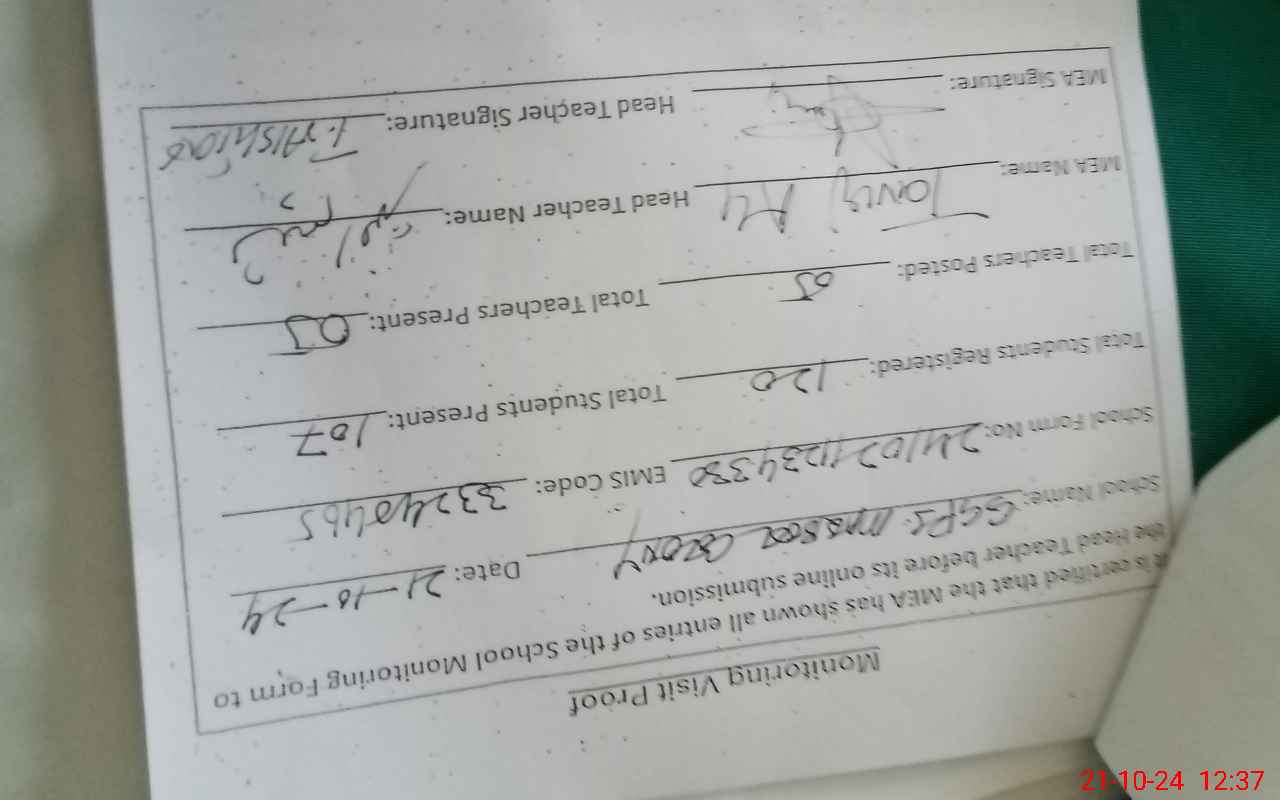 Monitoring Visit Proof
It is certified that the MEA has shown all entries of the School Monitoring Form to
the Head Teacher before its online submission.
School Name: GGPS Colony Date: 21-10-24
School Form No: EMIS Code: 33240465
Total Students Registered: 120 Total Students Present: 107
Total Teachers Posted: 05 Total Teachers Present: 05
MEA Name: Head Teacher Name:
MEA Signature: Head Teacher Signature:
21-10-24 12:37